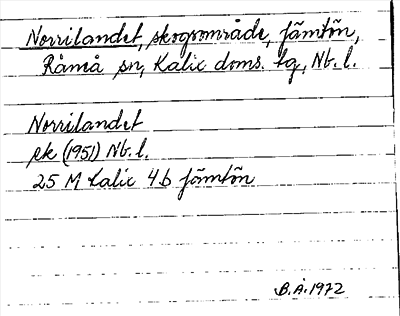 Norrilandet, skogsområde, Jämtön,
Råneå sn, Kalix doms. tg, Nb. l.
Norrilandet
ek (1951) Nb. l.
25 M Kalix 4b Jämtön
B.Å. 1972